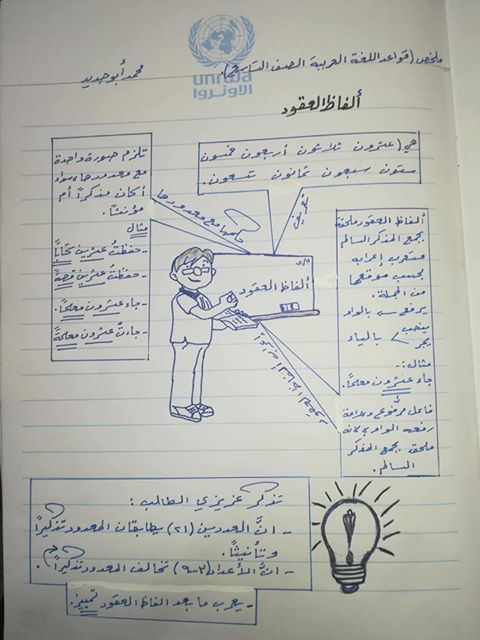 ملخص (قواعد اللغة العربية الصف التاسع).
محمد أبو حديد
unrwa
الأونروا
ألفاظ العقود
هي (عشرون ثلاثون أربعون خمسون
ستون سبعون ثمانون تسعون.
تعريف
تلزم صورة واحدة
مع معدودها سواء
أكان مذكراً أم
مؤنثاً.
مثال
- حفظتُ عشرين كتاباً
- حفظتُ عشرين قصةً
- جاء عشرون معلماً.
- جاءت عشرون معلمةً
حكمها مع معدودها
ألفاظ العقود
ألفاظ العقود ملحقة
بجمع المذكر السالم
فتعرب إعرابه
بحسب موقعها
من الجملة.
يرفع بالواو
ينصب
يجر بالياء
مثال:
جاء عشرون معلماً.
فاعل مرفوع وعلامة
رفعه الواو لأنه
ملحق بجمع المذكر
السالم.
تذكر عزيزي الطالب:
- انَّ العددين (٢١) يطابقان المعدود تذكيراً
وتأنيثاً.
- انَّ الأعداد (٣-٩) تخالف المعدود تذكيراً.
- يعرب ما بعد الفاظ العقود تمييز.